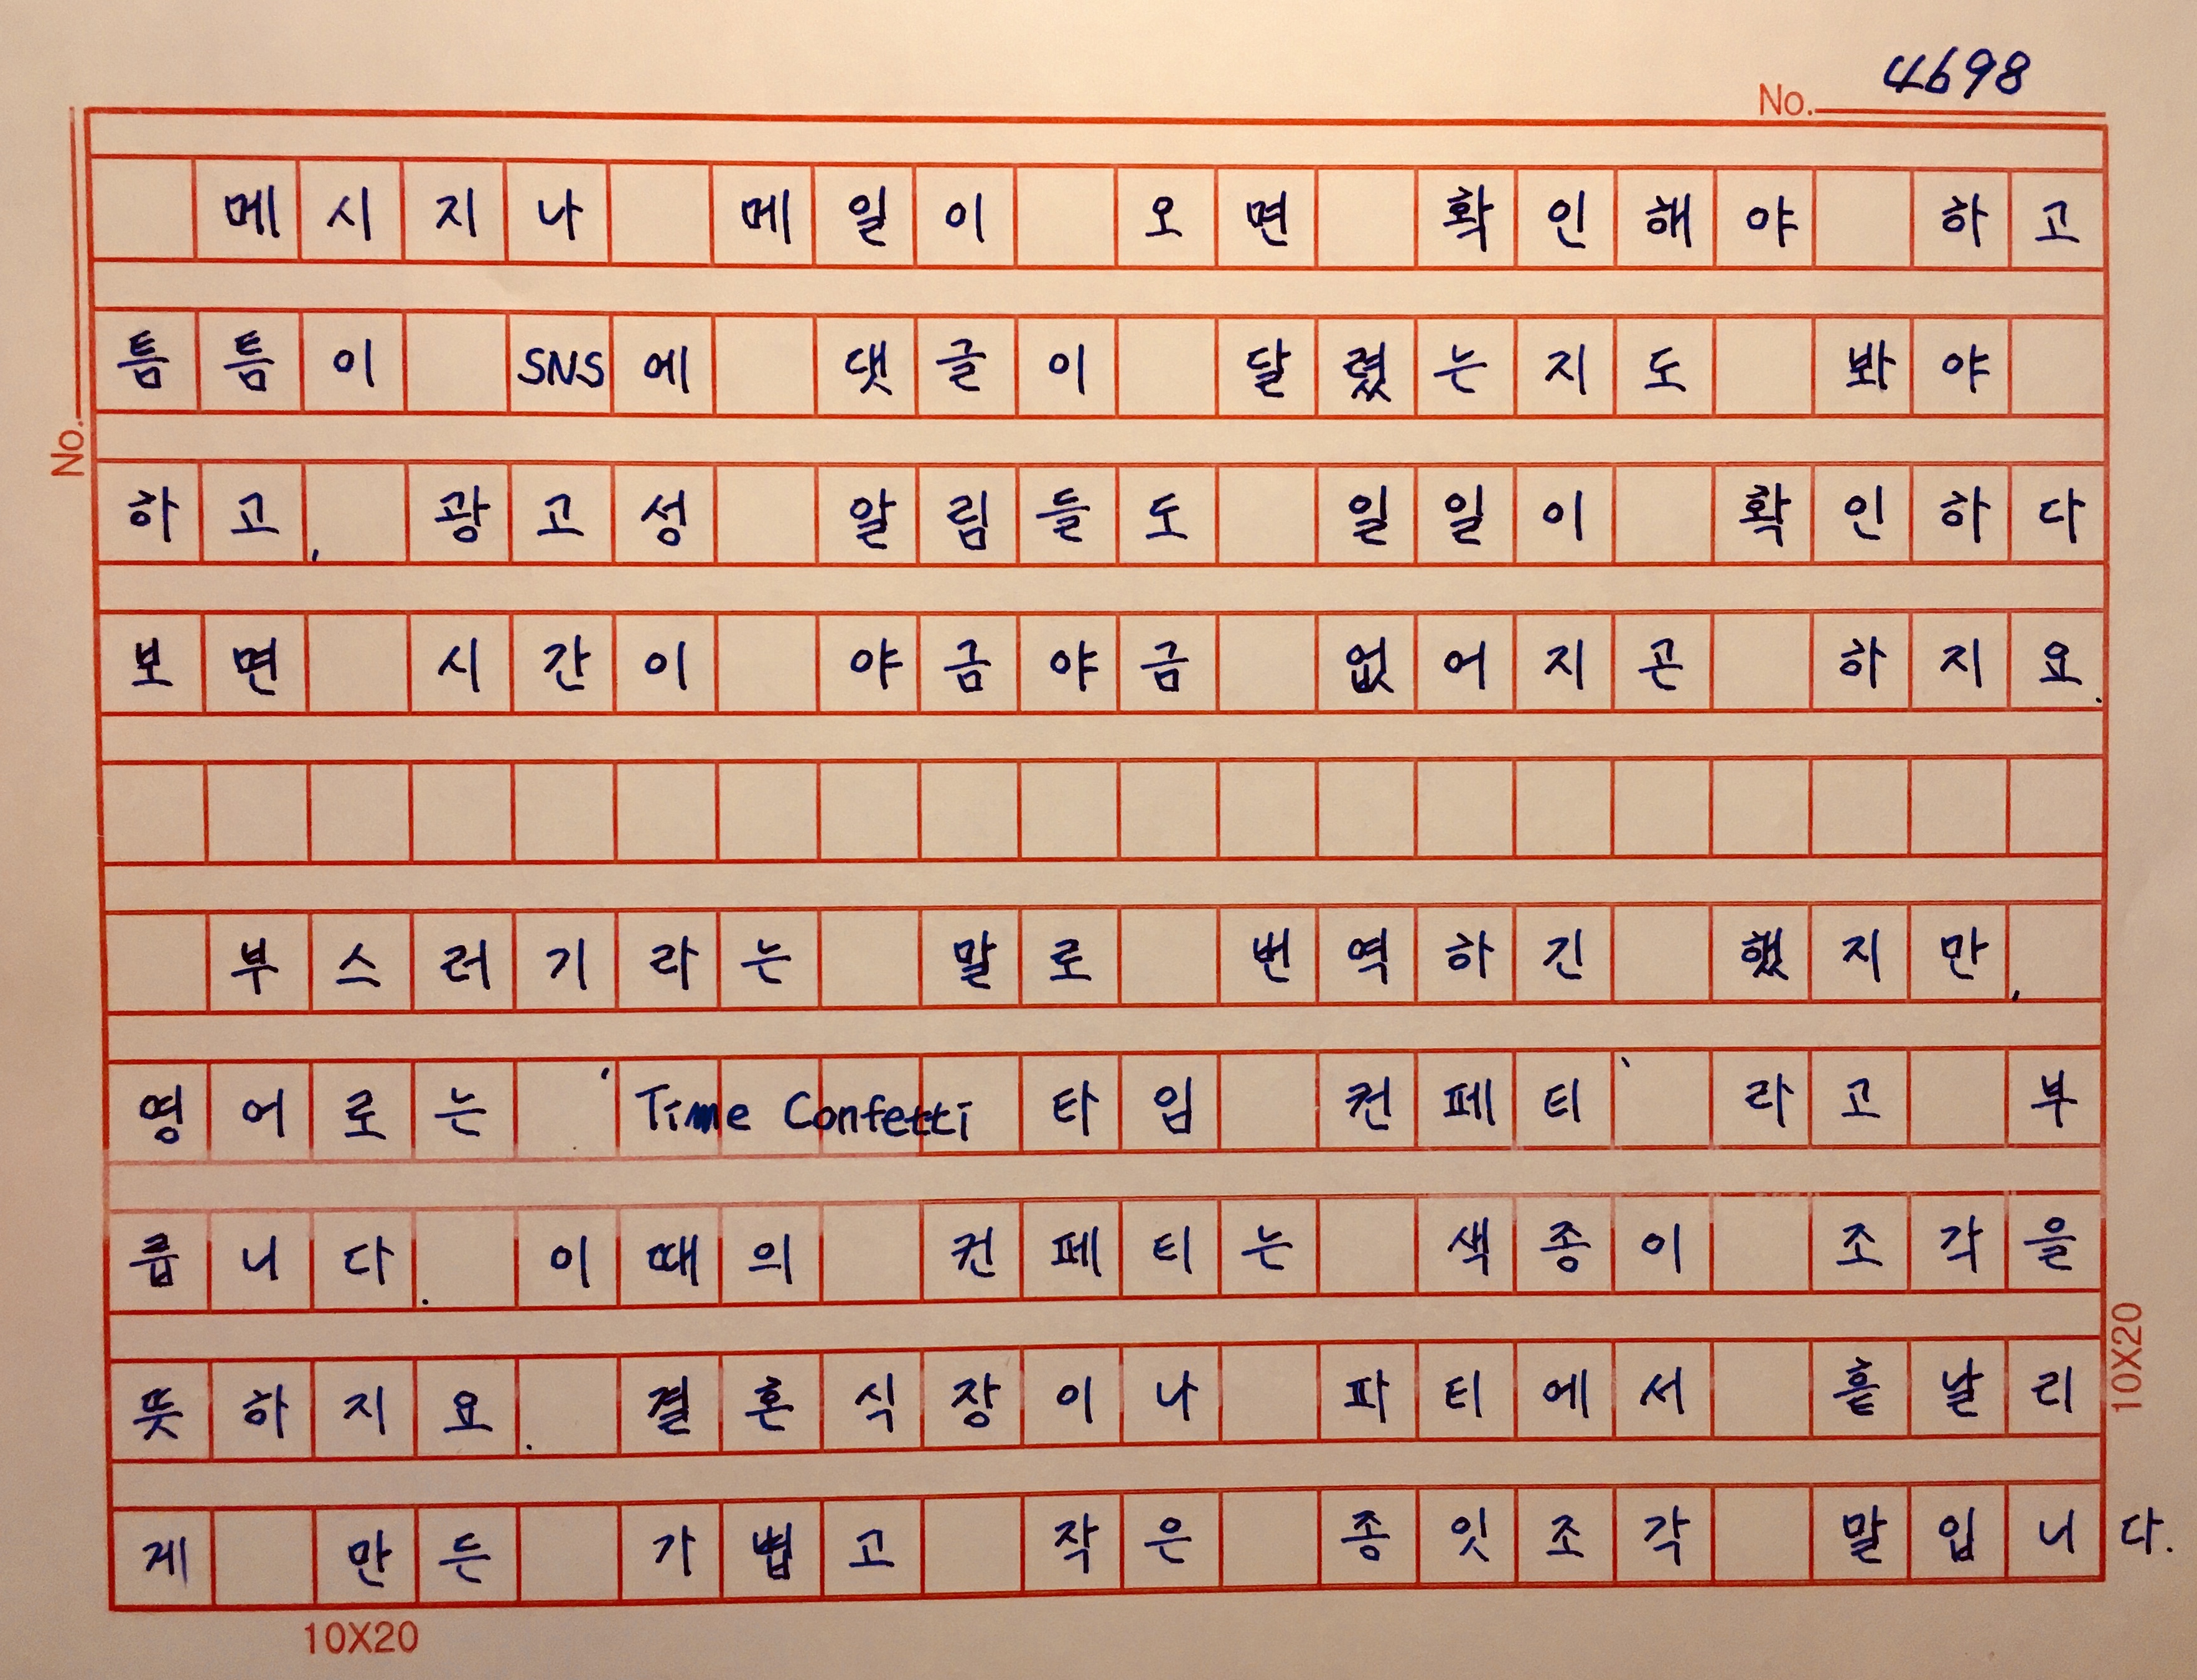 4698
No.
메시지나 메일이 오면 확인해야 하고
틈틈이 SNS에 댓글이 달렸는지도 봐야
No.
하고, 광고성 알림들도 일일이 확인하다
보면 시간이 야금야금 없어지곤 하지요.
부스러기라는 말로 번역하긴 했지만,
영어로는 'Time Confetti 타임 컨페티'라고 부
릅니다. 이때의 컨페티는 색종이 조각을
뜻하지요. 결혼식장이나 파티에서 흩날리
10X20
게 만든 가볍고 작은 종잇조각 말입니다.
10X20